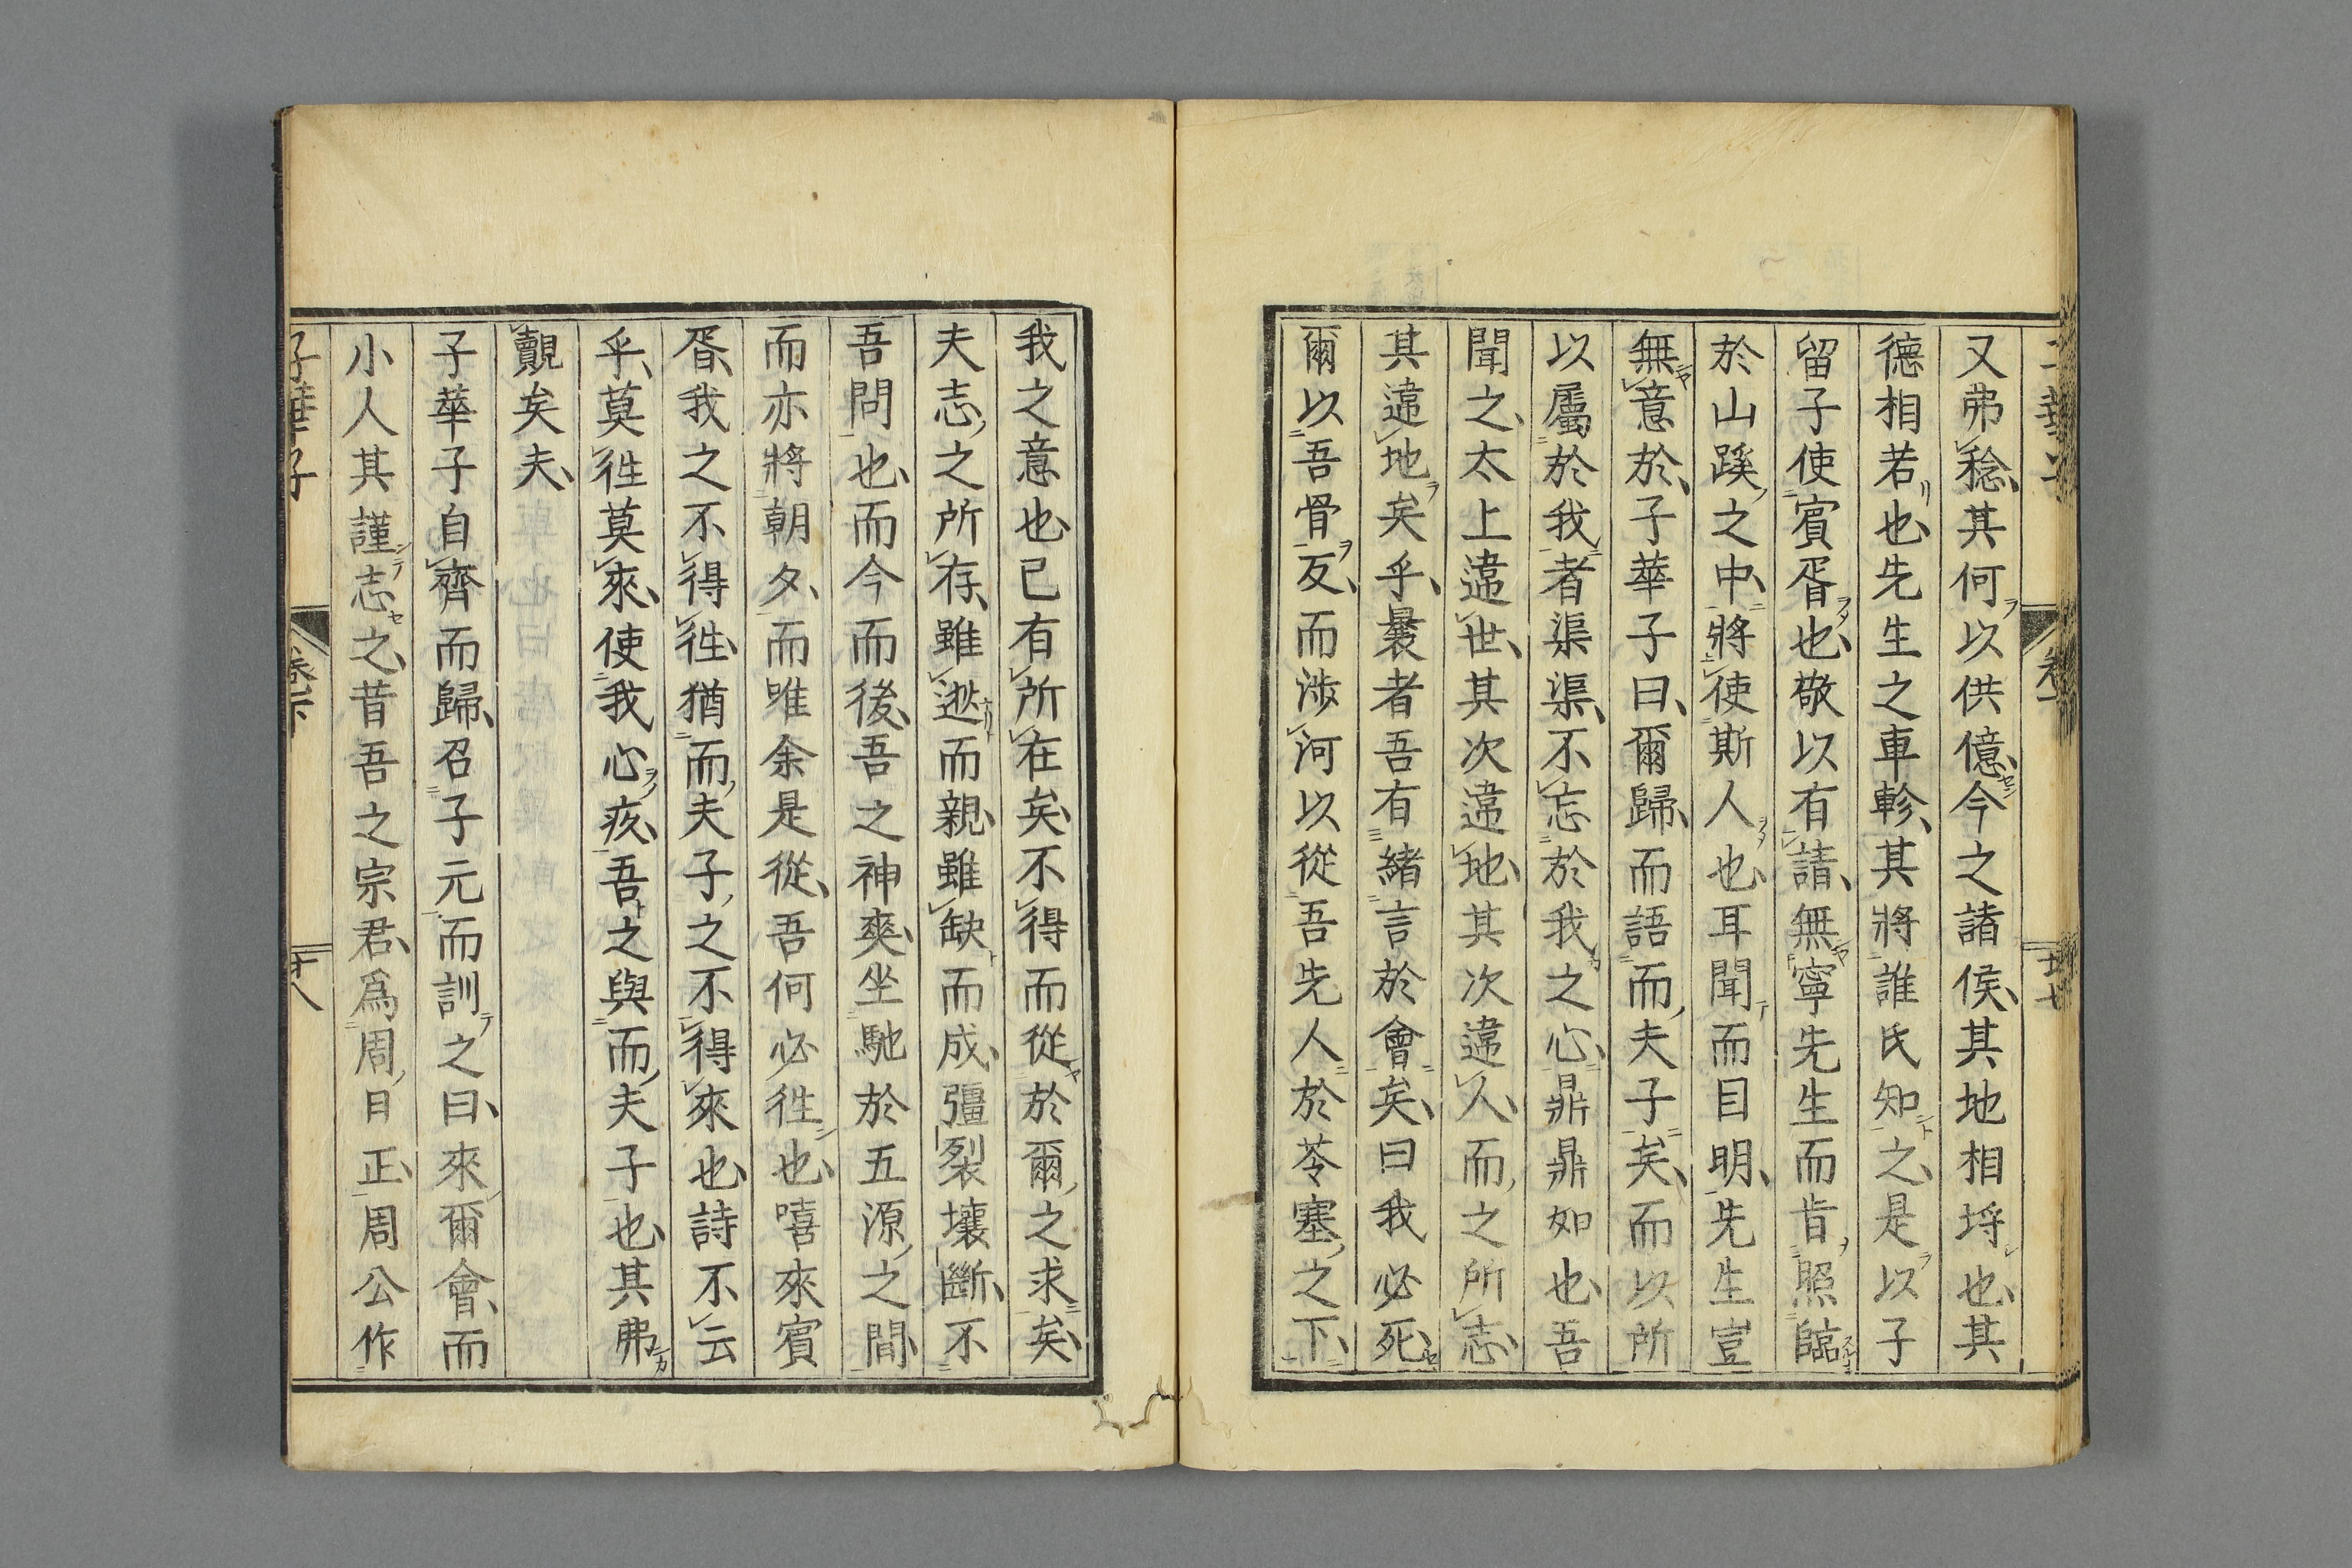 又弗稔其何以供億今之諸侯其地相埒也其
德相若也先生之車軫其將誰氏知之是以子
留子使賓胥也敬以有請無寧先生而肯照臨
於山蹊之中將使斯人也耳聞而目明先生豈
無意於子華子曰爾歸而語而夫子矣而以所
以屬於我者渠渠不忘於我之心鼎鼎如也吾
聞之太上違世其次違地其次違人而之所志
其違地矣乎曩者吾有緒言於會矣曰我必死
爾以吾骨反而涉河以從吾先人於苓塞之下
我之意也已有所在矣不得而從於爾之求矣
夫志之所存雖逖而親雖缺而成彊裂壤斷不
吾問也而今而後吾之神爽坐馳於五源之間
而亦將朝夕而唯余是從吾何必徃也嘻來賓
胥我之不得徃猶而夫子之不得來也詩不云
乎莫徃莫來使我心疚吾之與而夫子也其弗
覿矣夫
子華子自齊而歸召子元而訓之曰來爾會而
小人其謹志之昔吾之宗君爲周日正周公作
子華子 卷下 十八